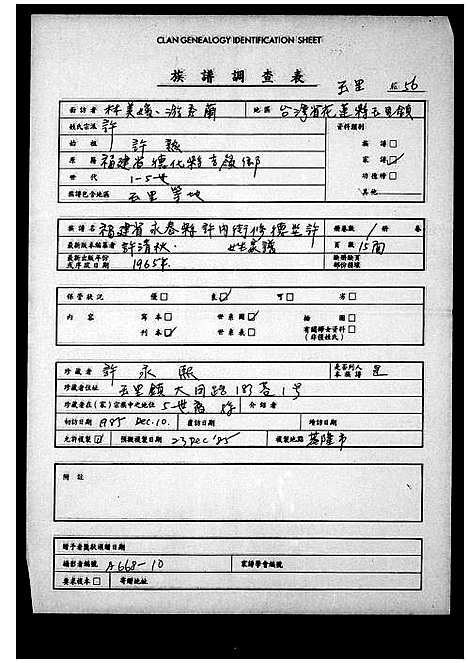 CLAN GENEALOGY IDENTIFICATION SHEET
族譜調查表
玉里 56
面訪者 林美 地區 台灣省花蓮縣玉里鎮
姓氏宗派 許 資料類別
始祖 許 族譜
原籍 福建省德化縣 鄉 家譜
世代 1-5世 功德榜
族譜包含地區 玉里等地 其他
族譜名 福建省永春縣許內街修德堂許 冊卷數 1 冊 卷
最新版本編纂者 許清秋 世系譜 頁數 15面
最新出版年份或序跋日期 1965年
保管狀況 優 良 可 劣
內容 寫本 世系圖 插圖
刊本 世系表 有關婦女資料(非僅姓氏)
珍藏者 許永熙 是否列入本族譜 是
珍藏者住址 玉里鎮大同路183巷1号
珍藏者在(家)宗族中之地位 5世裔孫 介紹者
初訪日期 1985 Dec.10. 覆訪日期 增訪日期
允許複製 預擬複製日期 23 Dec '85 複製地點 基隆市
附註
贈予者獎狀頒贈日期
攝影者編號 A668-10 家譜學會編號
要求複本 寄贈地址